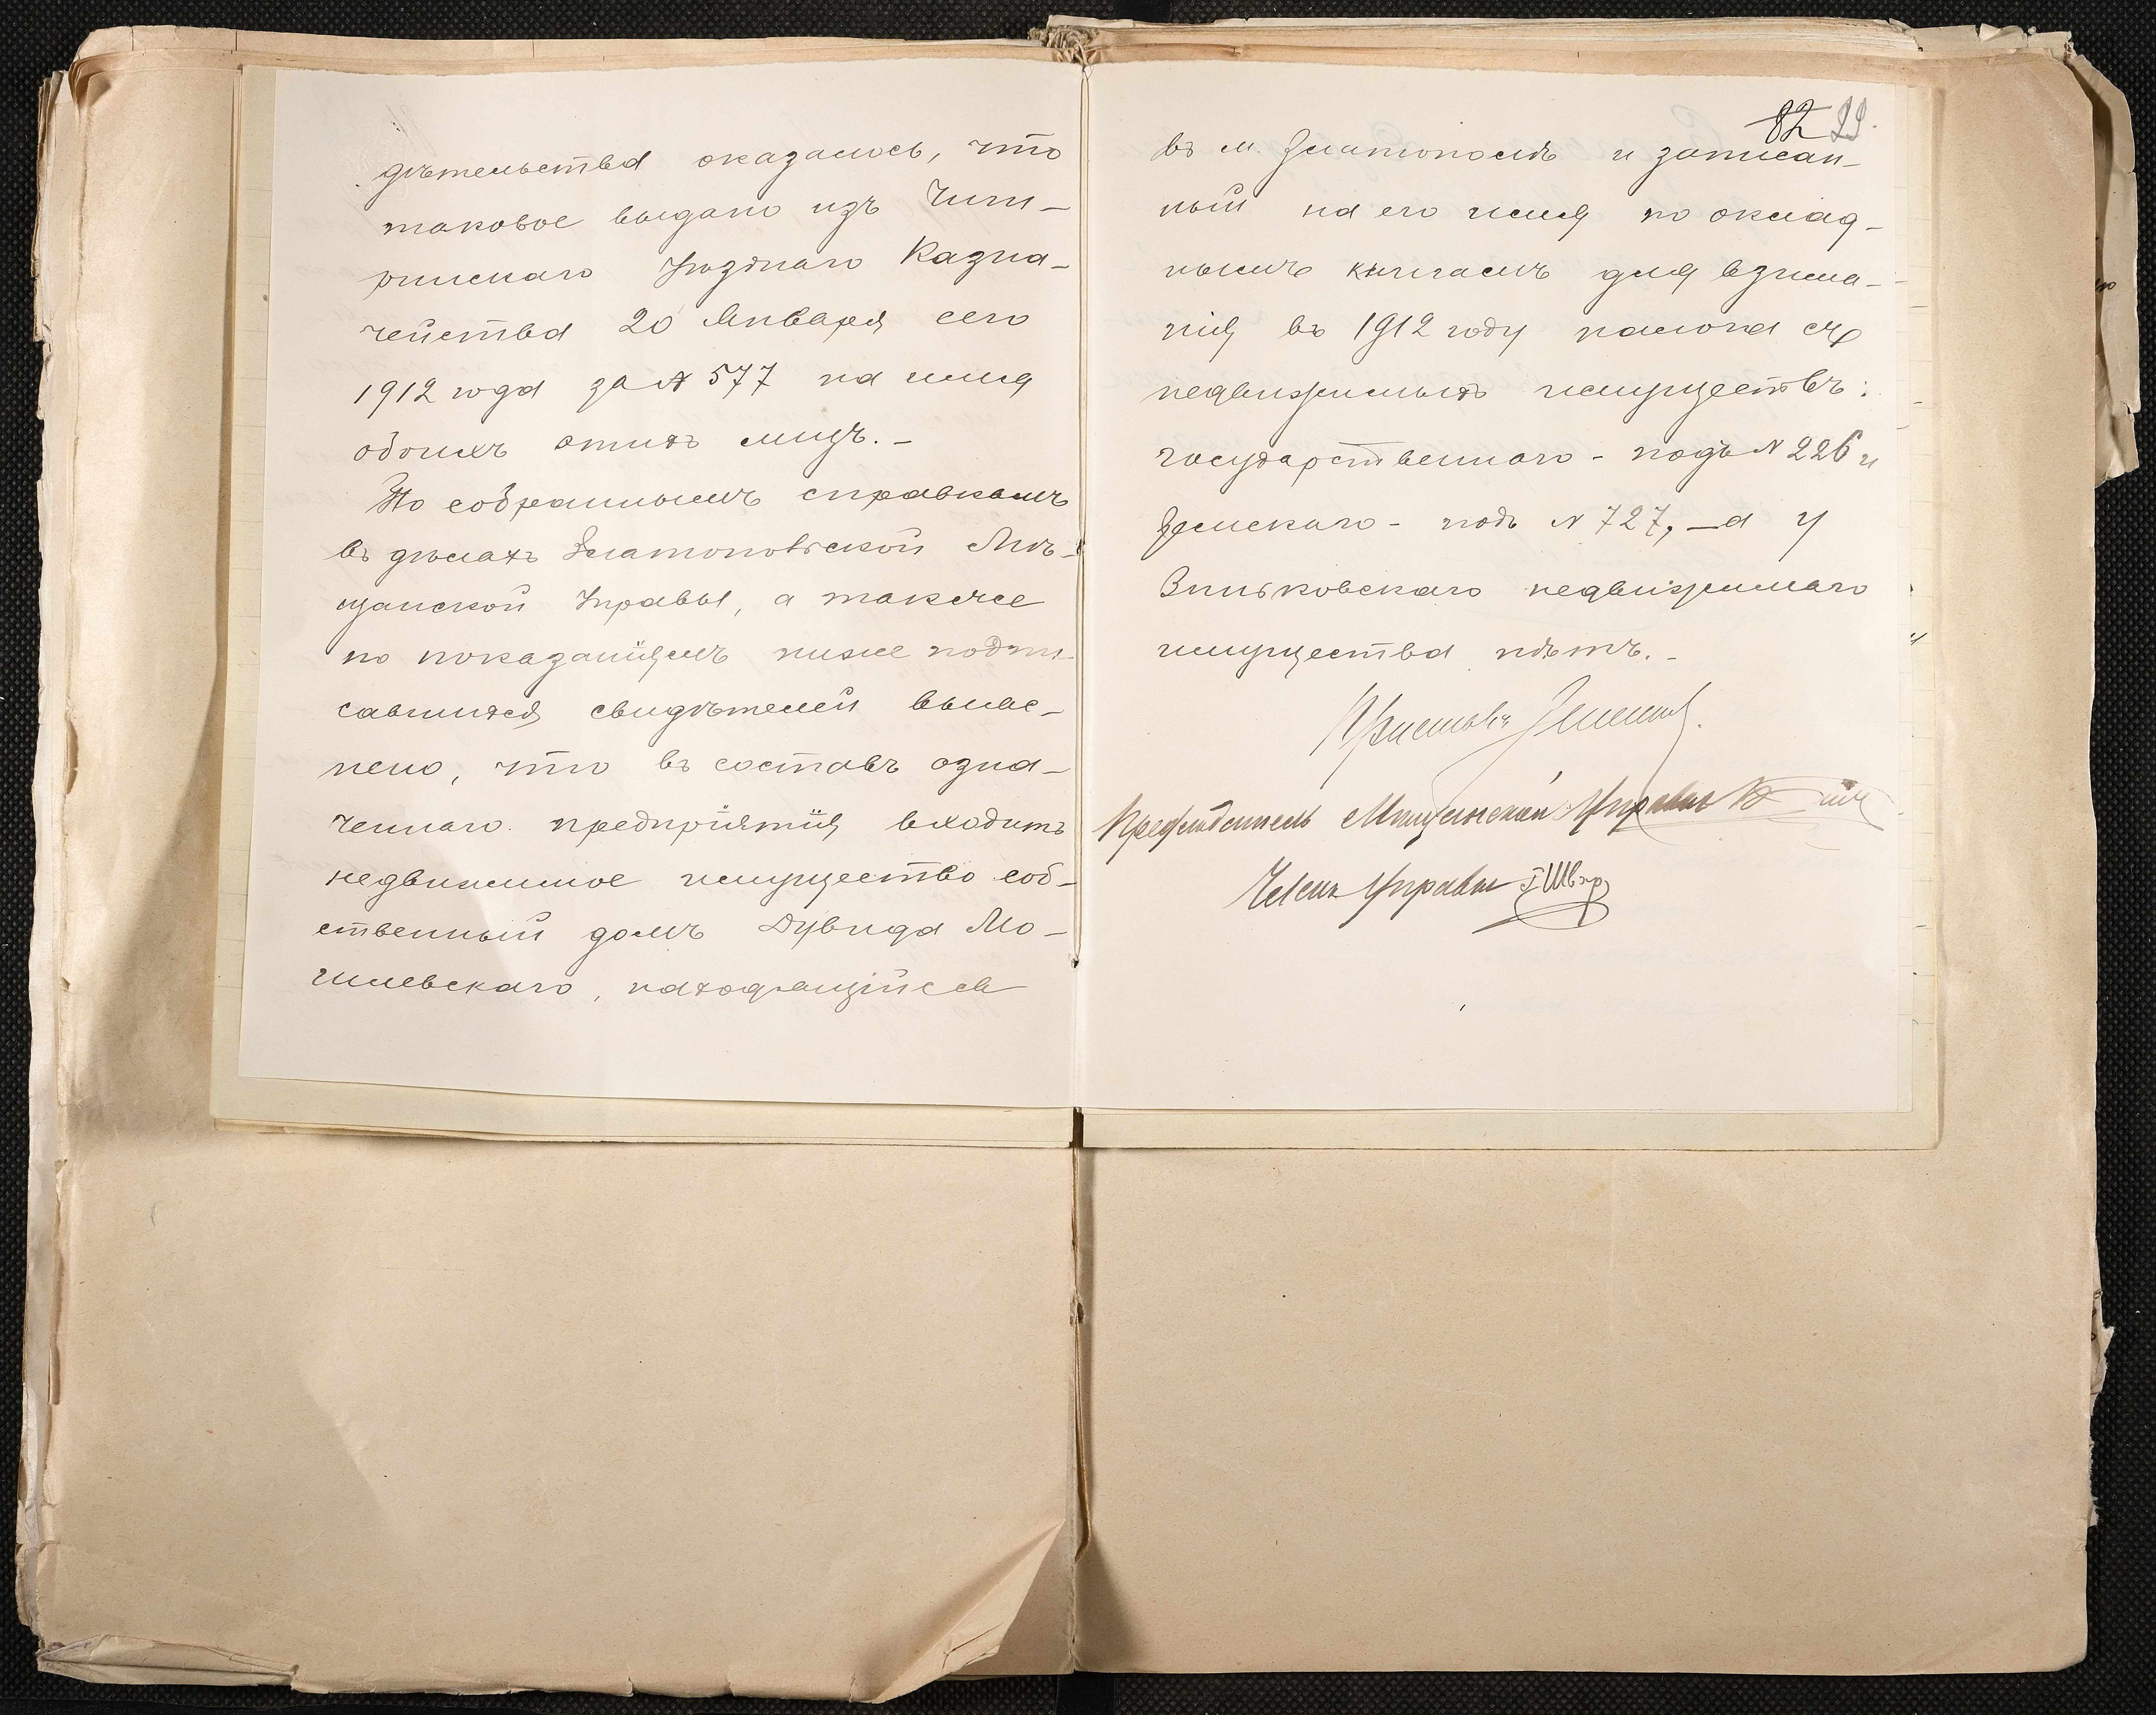 дѣтельства оказалось, что
таковое выдано изъ Чиги-
ринскаго Уѣзднаго Казна-
чейства 20 Января сего
1912 года за № 577 на имя
обоихъ этихъ лицъ. -
По собраннымъ справкамъ
въ дѣлахъ Златопольской Мѣ-
щанской Управы, а также
по показаніямъ ниже подпи-
савшихся свидѣтелей выяс-
нено, что въ составъ озна-
ченнаго предпріятія входитъ
недвижимое имущество соб-
ственный домъ Дувида Мо-
гилевскаго, находящійся
82 22
въ м. Златополѣ и записан-
ный на его имя по оклад-
нымъ книгамъ для взима-
нія въ 1912 году налога съ
недвижимыхъ имуществъ:
государственнаго - подъ № 226 и
Земскаго - подъ № 727, - а у
Зиньковскаго недвижимаго
имущества нѣтъ. -
Приставъ
Предсѣдатель Мѣщанской Управы
Членъ Управы